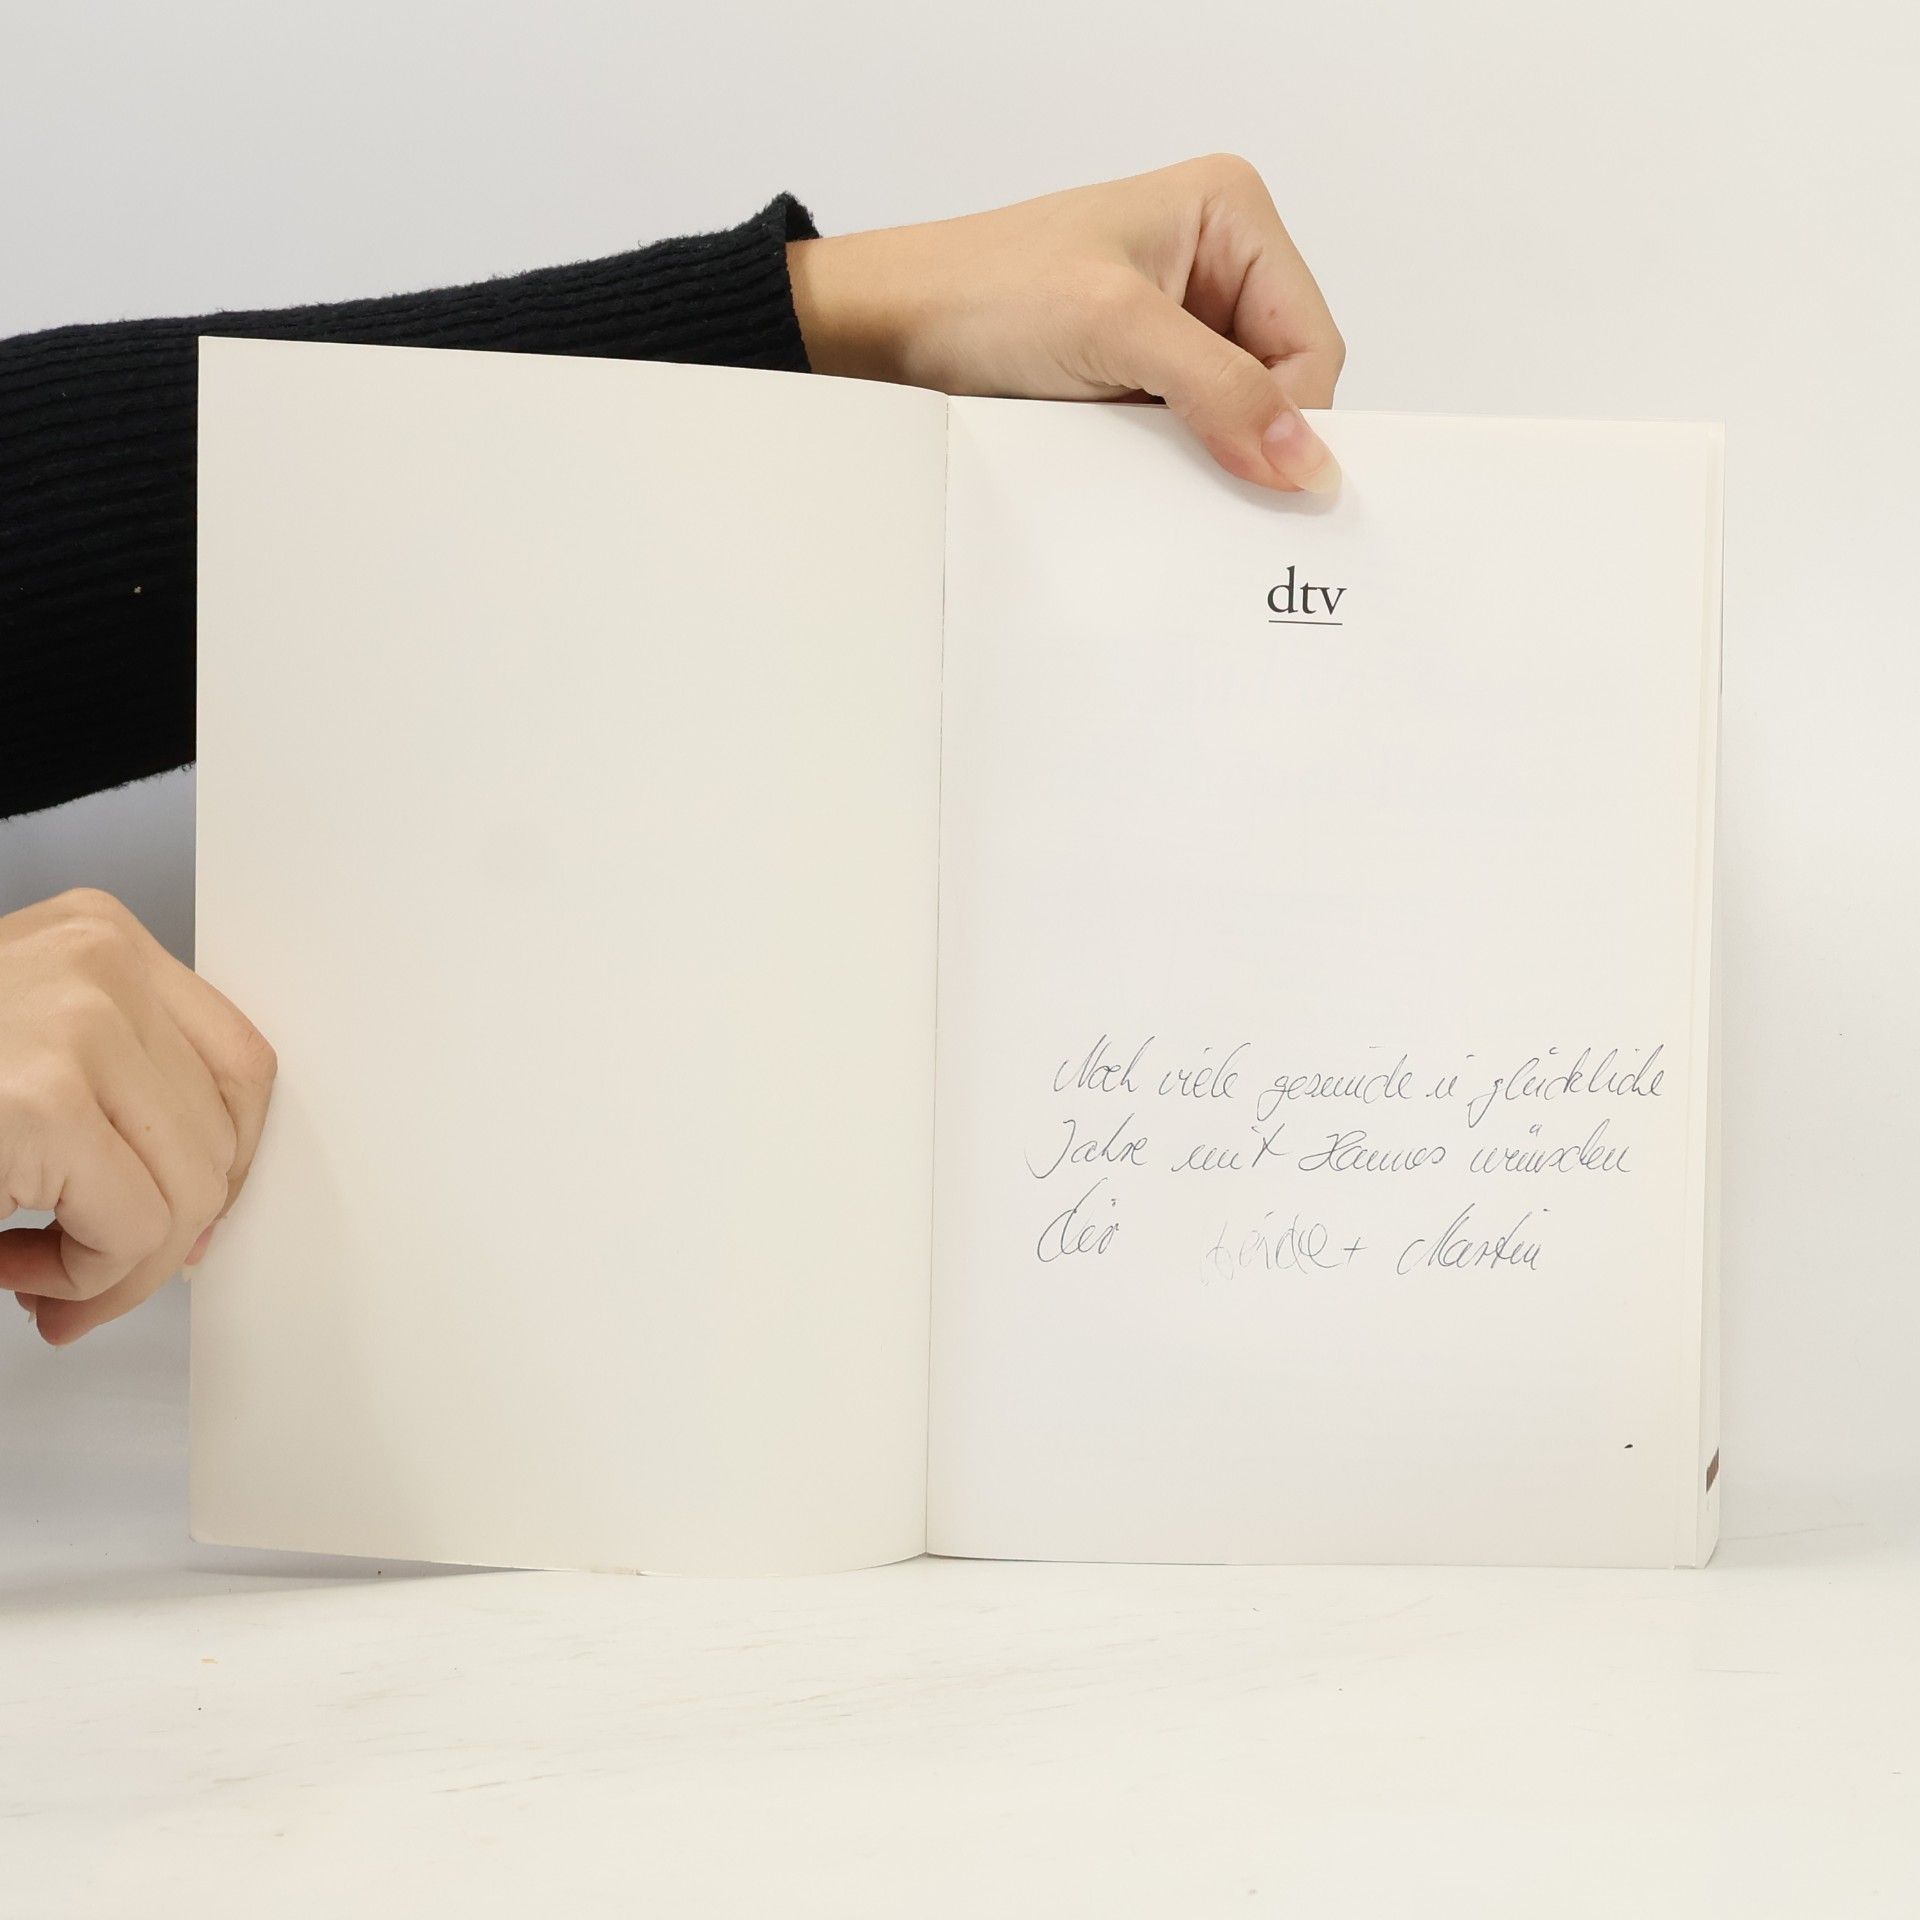 dtv
Noch viele gesunde u glückliche
Jahre mit Hannes wünschen
dir Heide + Martin